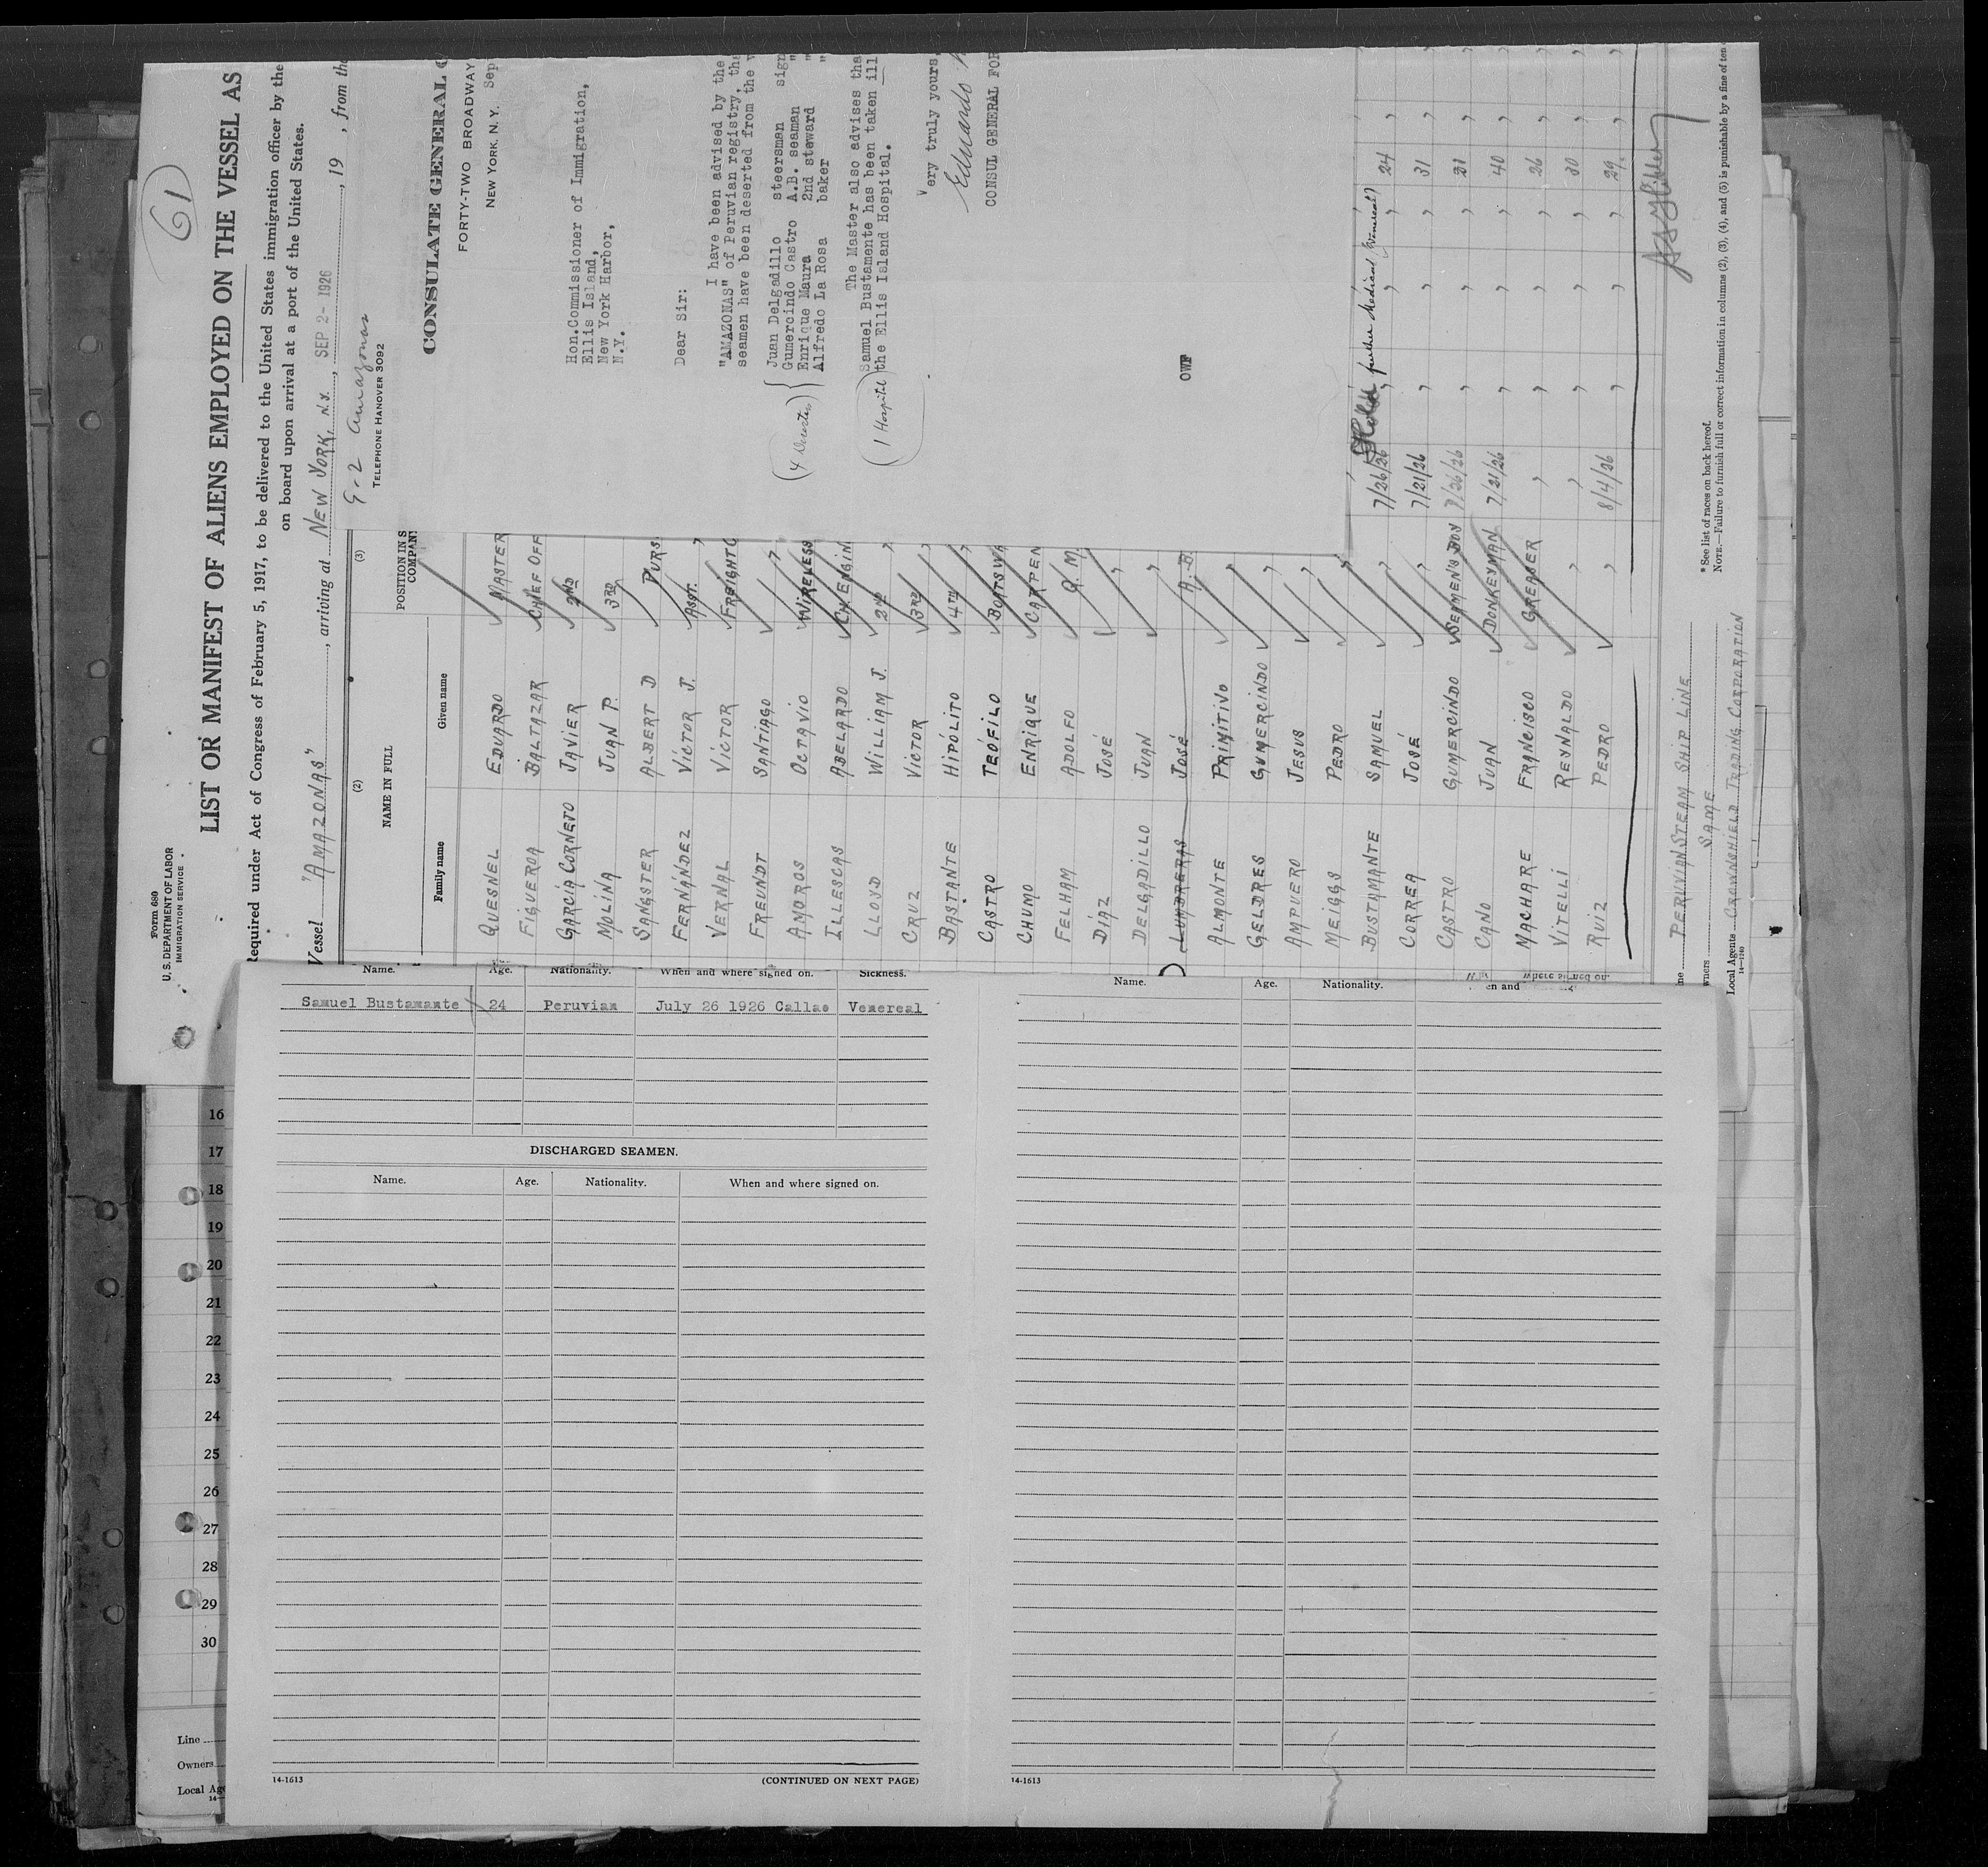 61
Form 689
U. S. DEPARTMENT OF LABOR
IMMIGRATION SERVICE
LIST OR MANIFEST OF ALIENS EMPLOYED ON THE VESSEL AS
Required under Act of Congress of February 5, 1917, to be delivered to the United States immigration officer by the
on board upon arrival at a port of the United States.
Vessel "AMAZONAS", arriving at NEW YORK, N.Y., SEP 2- 1926, 19 , from the
(2)
(3)
NAME IN FULL
POSITION IN S
COMPAN
Family name
Given name
QUESNEL EDUARDO MASTER
FIGUEROA BALTAZAR CHIEF OFF
GARCÍA CORNEJO JAVIER 2ND
MOLINA JUAN P. 3RD
SANGSTER ALBERT D PURS.
FERNÁNDEZ VICTOR J. ASST.
VERNAL VICTOR FREIGHT C
FREUNDT SANTIAGO "
AMOROS OCTAVIO WIRELESS
ILLESCAS ABELARDO CH. ENGIN
LLOYD WILLIAM J. 2ND "
CRUZ VICTOR 3RD "
BASTANTE HIPÓLITO 4TH "
CASTRO TEÓFILO BOATSWA
CHUMO ENRIQUE CARPEN
FELHAM ADOLFO Q. M.
DÍAZ JOSÉ "
DELGADILLO JUAN "
LUMBRERAS JOSÉ A. B.
ALMONTE PRIMITIVO "
GELDRES GUMERCINDO "
AMPUERO JESUS "
MEIGGS PEDRO "
BUSTAMANTE SAMUEL " 7/26/26 Hold for further Medical (Venereal) 24
CORREA JOSÉ " 7/21/26 31
CASTRO GUMERCINDO SEAMEN'S BOY 7/26/26 21
CANO JUAN DONKEYMAN 7/21/26 40
MACHARE FRANCISCO GREASER " 26
VITELLI REYNALDO " " 30
RUIZ PEDRO " 8/4/26 29
PERUVIAN STEAM SHIP LINE
Owners SAME
Local Agents CROWNSHIELD TRADING CORPORATION
14-1240
* See list of races on back hereof.
NOTE.—Failure to furnish full or correct information in columns (2), (3), (4), and (5) is punishable by a fine of ten
9-2 Amazonas
TELEPHONE HANOVER 3092
CONSULATE GENERAL
FORTY-TWO BROADWAY
NEW YORK, N. Y. Sep
Hon.Commissioner of Immigration,
Ellis Island,
New York Harbor,
N.Y.
Dear Sir:
I have been advised by the
"AMAZONAS" of Peruvian registry, tha
seamen have been deserted from the v
Juan Delgadillo steersman sign
Gumercindo Castro A.B. seaman "
Enrique Maura 2nd steward "
Alfredo La Rosa baker "
(4 Deserters)
The Master also advises tha
Samuel Bustamente has been taken ill
the Ellis Island Hospital.
(1 Hospital)
Very truly yours,
Eduardo
CONSUL GENERAL FOR
OWF
Name. Age. Nationality. When and where signed on. Sickness.
Samuel Bustamante 24 Peruvian July 26 1926 Callao Venereal
DISCHARGED SEAMEN.
Name. Age. Nationality. When and where signed on.
14-1613
(CONTINUED ON NEXT PAGE)
Name. Age. Nationality. When and where signed on.
14-1613
16
17
18
19
20
21
22
23
24
25
26
27
28
29
30
Line
Owners
Local Age
14—